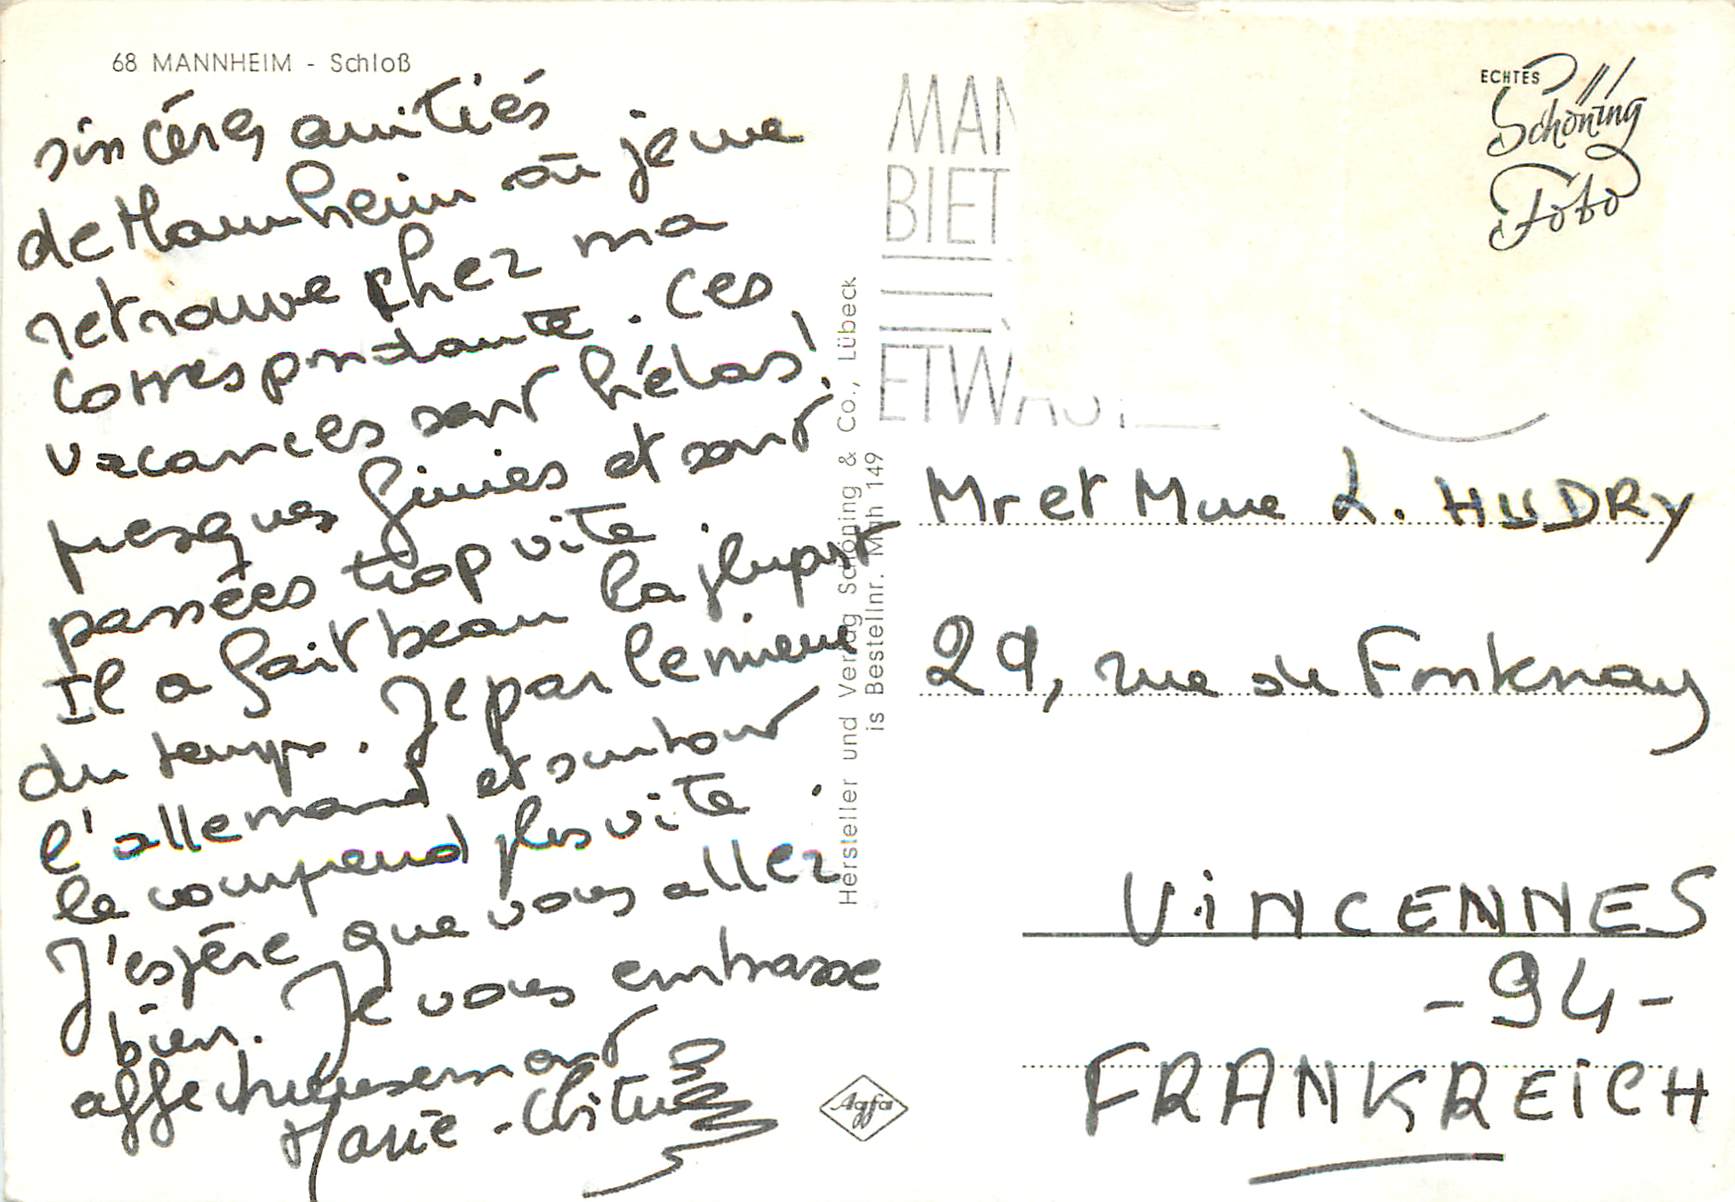 68 MANNHEIM - Schloß
sincères amitiés
de Mannheim où je me
retrouve chez ma
correspondante. Ces
vacances sont hélas!
presques finies et sont
passées trop vite.
Il a fait beau la plupart
du temps. Je parle mieux
l'allemand et surtout
le comprend plus vite.
J'espère que vous allez
bien. Je vous embrasse
affectueusement
Marie-Christine
Hersteller und Verlag Schöning & Co., Lübeck
is Bestellnr. Mgh 149
MAN
BIET
ETWAS
ECHTES
Schöning
Foto
Mr et Mme L. HUDRY
29, rue de Fontenay
VINCENNES
- 94 -
FRANKREICH
Agfa